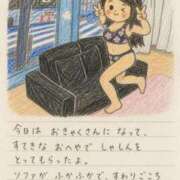 今日は おきゃくさんに なって、
すてきな おへやで しゃしんを
とってもらったよ。
ソファが ふかふかで、すわりごこち